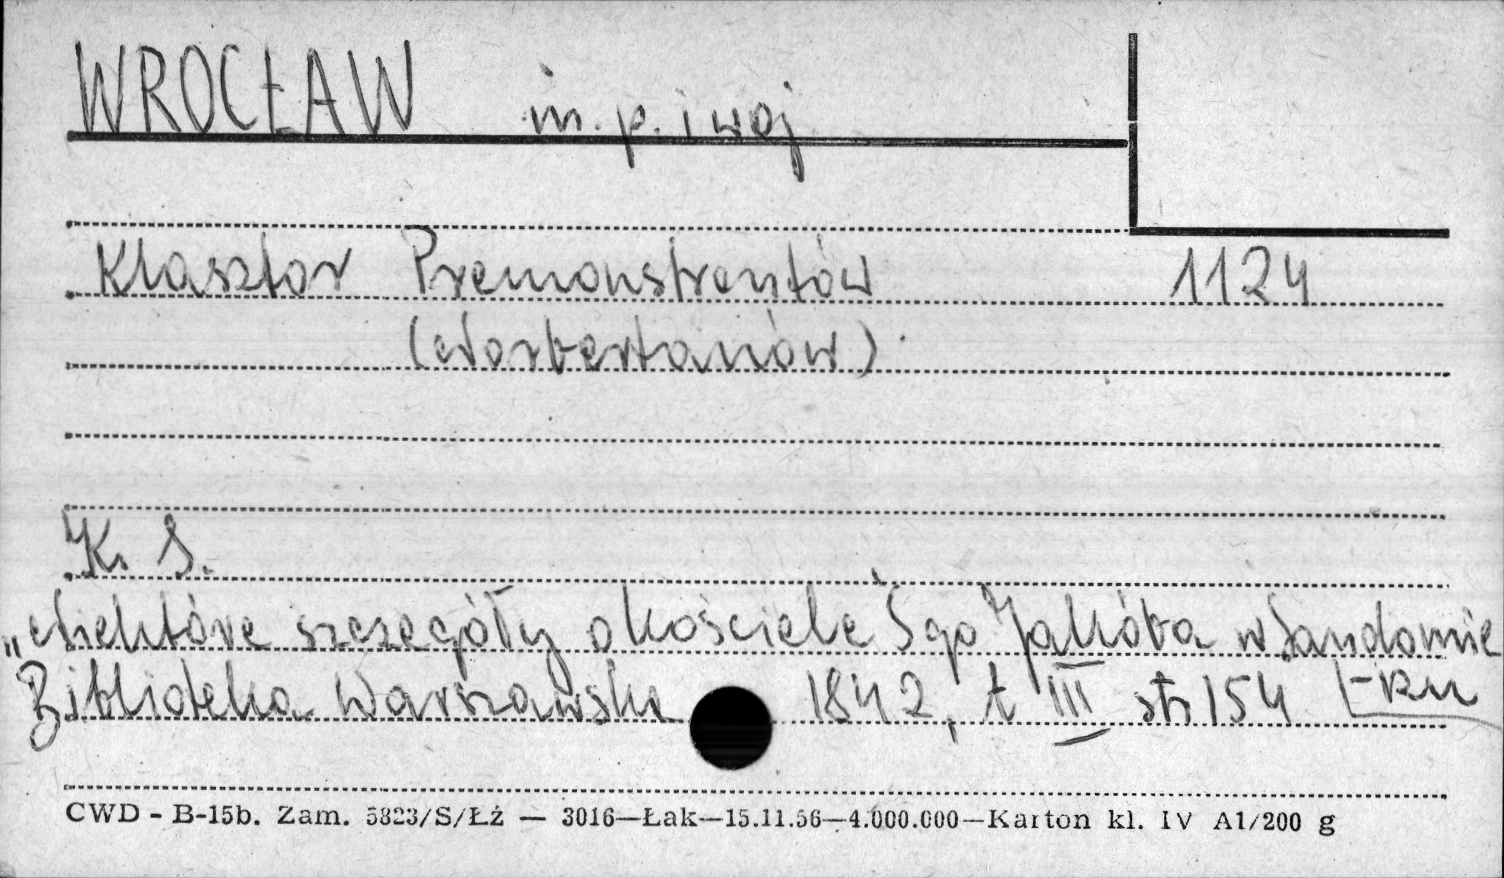 WROCŁAW m. p. i woj
Klasztor Premonstrantów 1124
(Norbertanów)
K. S.
„Niektóre szczegóły o kościele Sgo Jakóba w Sandomie
Biblioteka Warszawska 1842, t III str 154
CWD - B-15b. Zam. 5823/S/Łż — 3016—Łak—15.11.56—4.000.000—Karton kl. IV A1/200 g